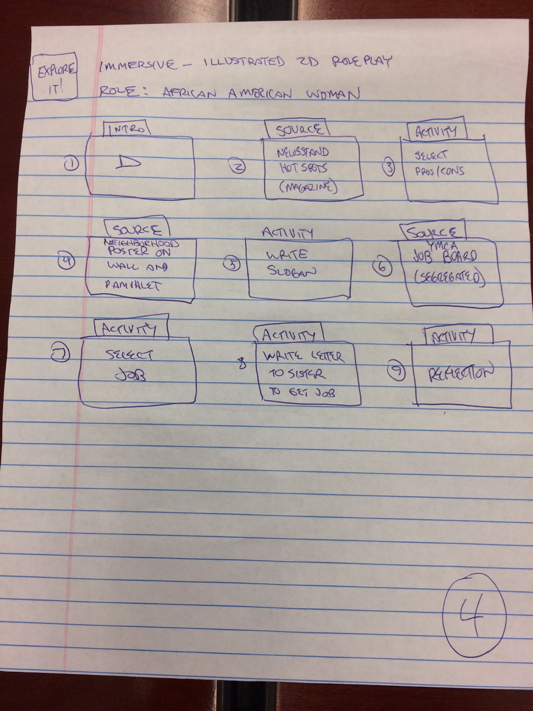 EXPLORE IT!
IMMERSIVE – ILLUSTRATED 2D ROLEPLAY
ROLE: AFRICAN AMERICAN WOMAN
INTRO
1
SOURCE
2
NEWSSTAND
HOT SPOTS
(MAGAZINE)
ACTIVITY
3
SELECT
PROS/CONS
SOURCE
4
NEIGHBORHOOD
POSTER ON
WALL AND
PAMPHLET
ACTIVITY
5
WRITE
SLOGAN
SOURCE
6
YMCA
JOB BOARD
(SEGREGATED)
ACTIVITY
7
SELECT
JOB
ACTIVITY
8
WRITE LETTER
TO SISTER
TO GET JOB
ACTIVITY
9
REFLECTION
4